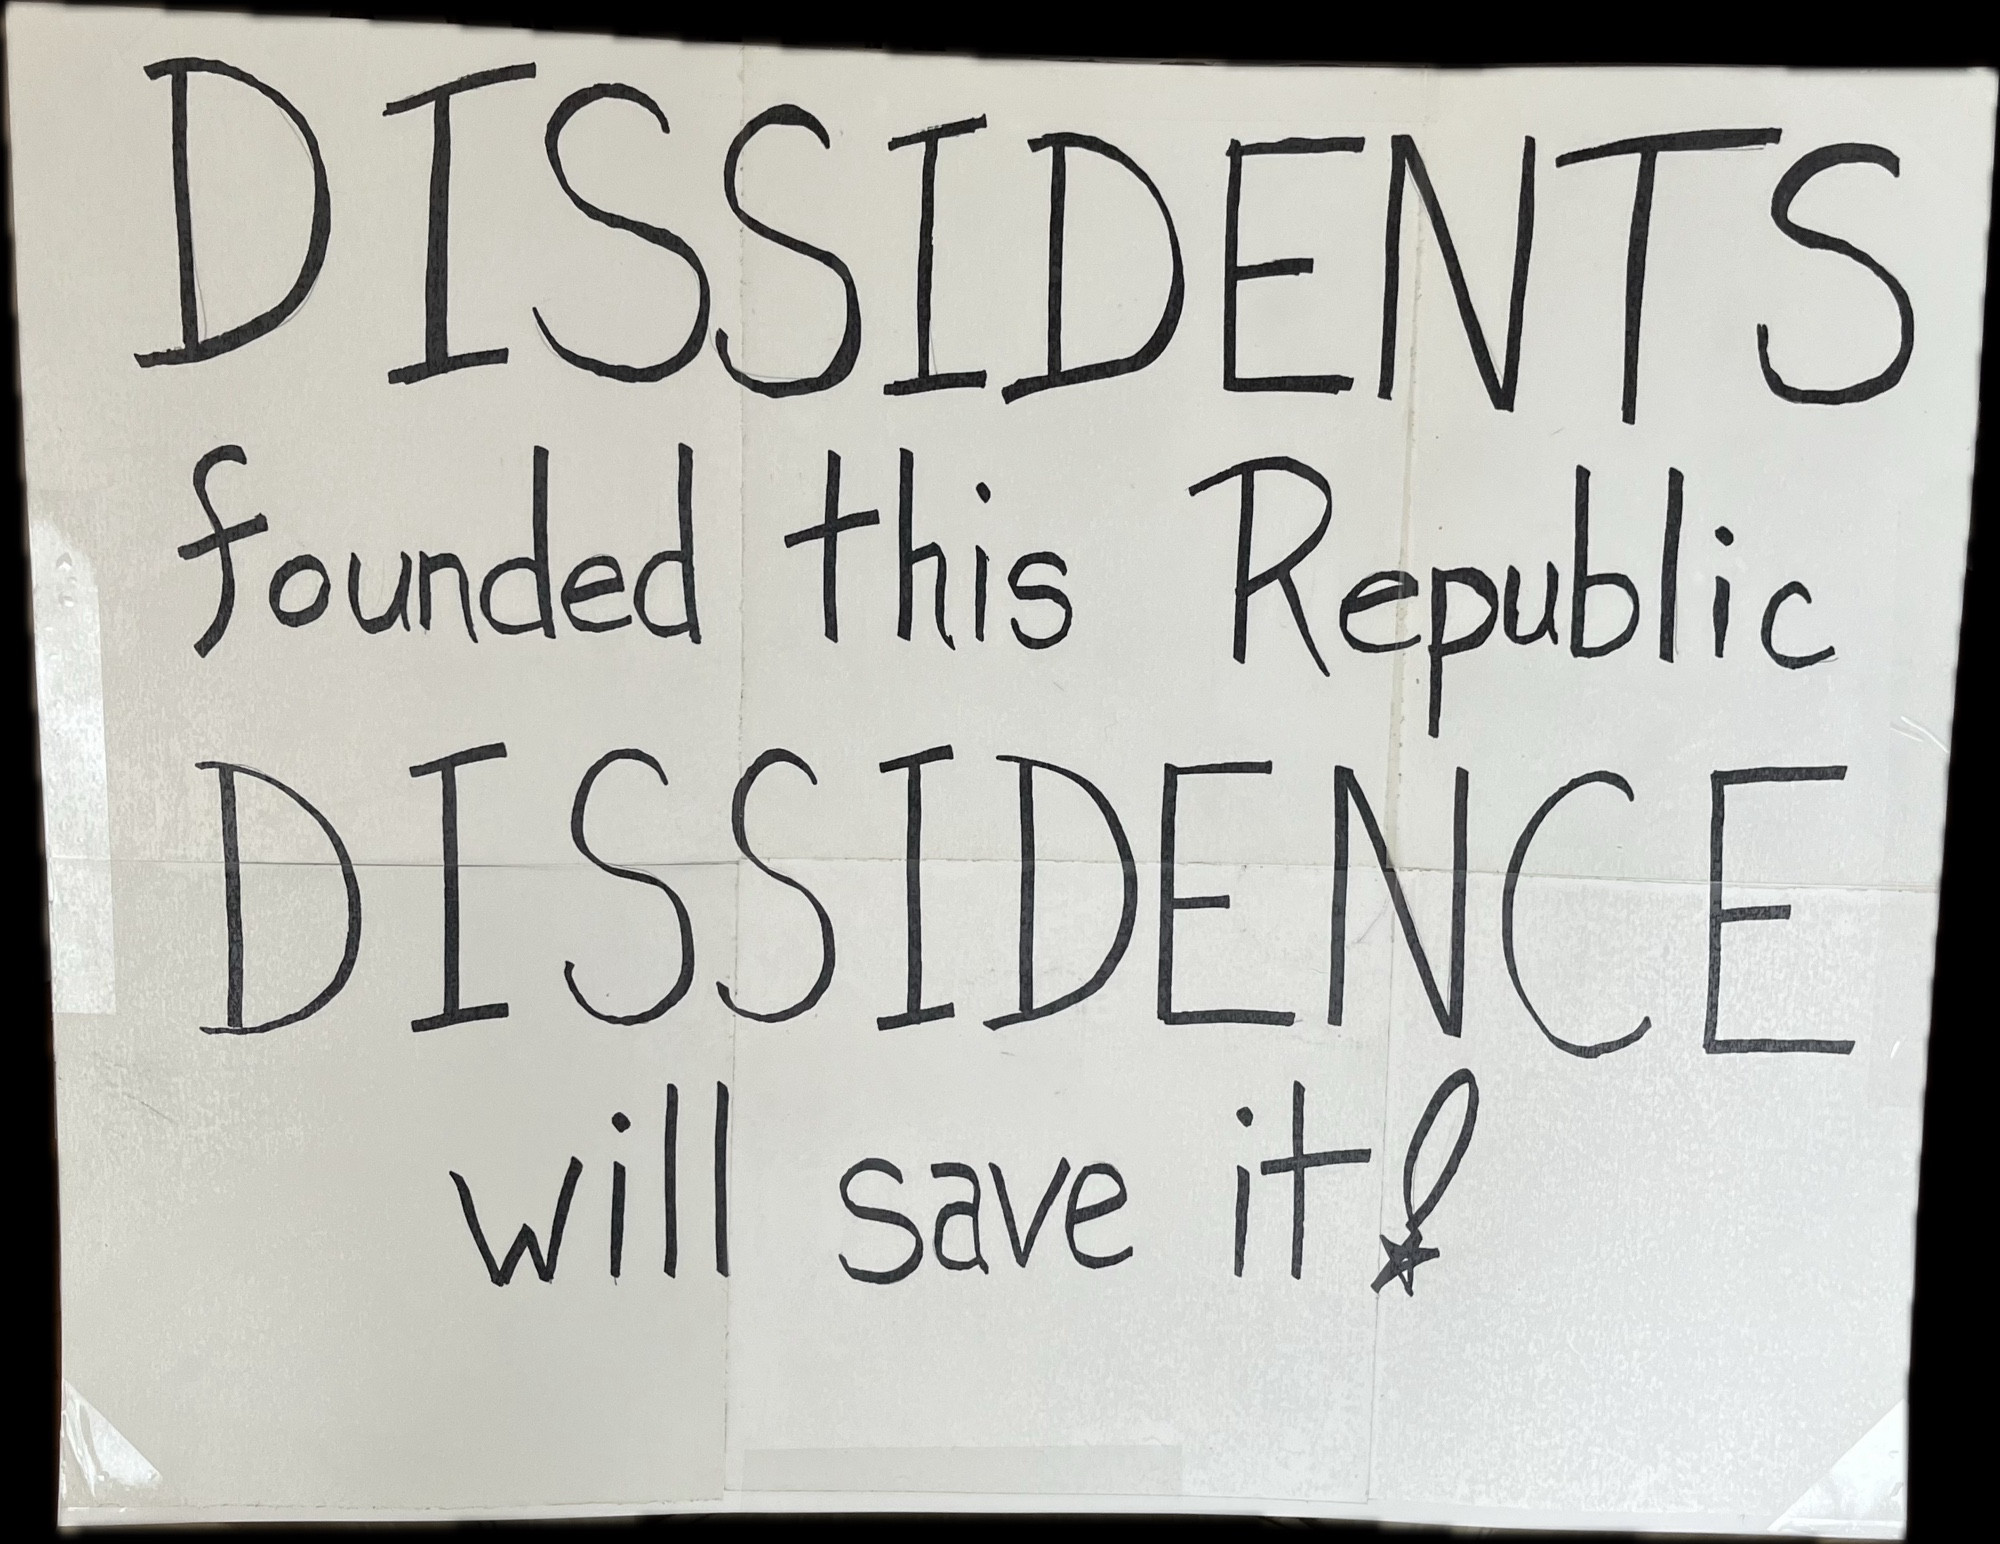 DISSIDENTS
founded this Republic
DISSIDENCE
will save it!